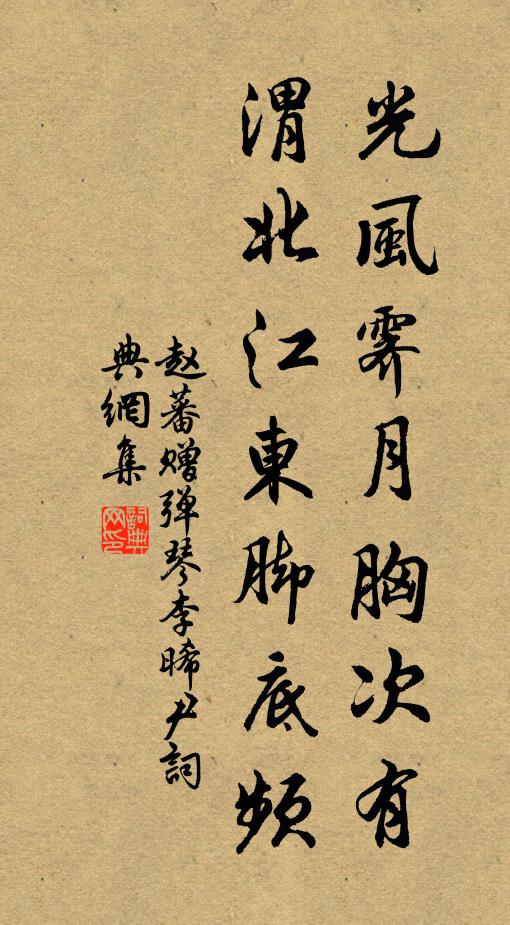 光風霽月胸次有
渭北江東脚底頻
赵蕃赠弹琴李晞尹詞
典網集
詞典網印